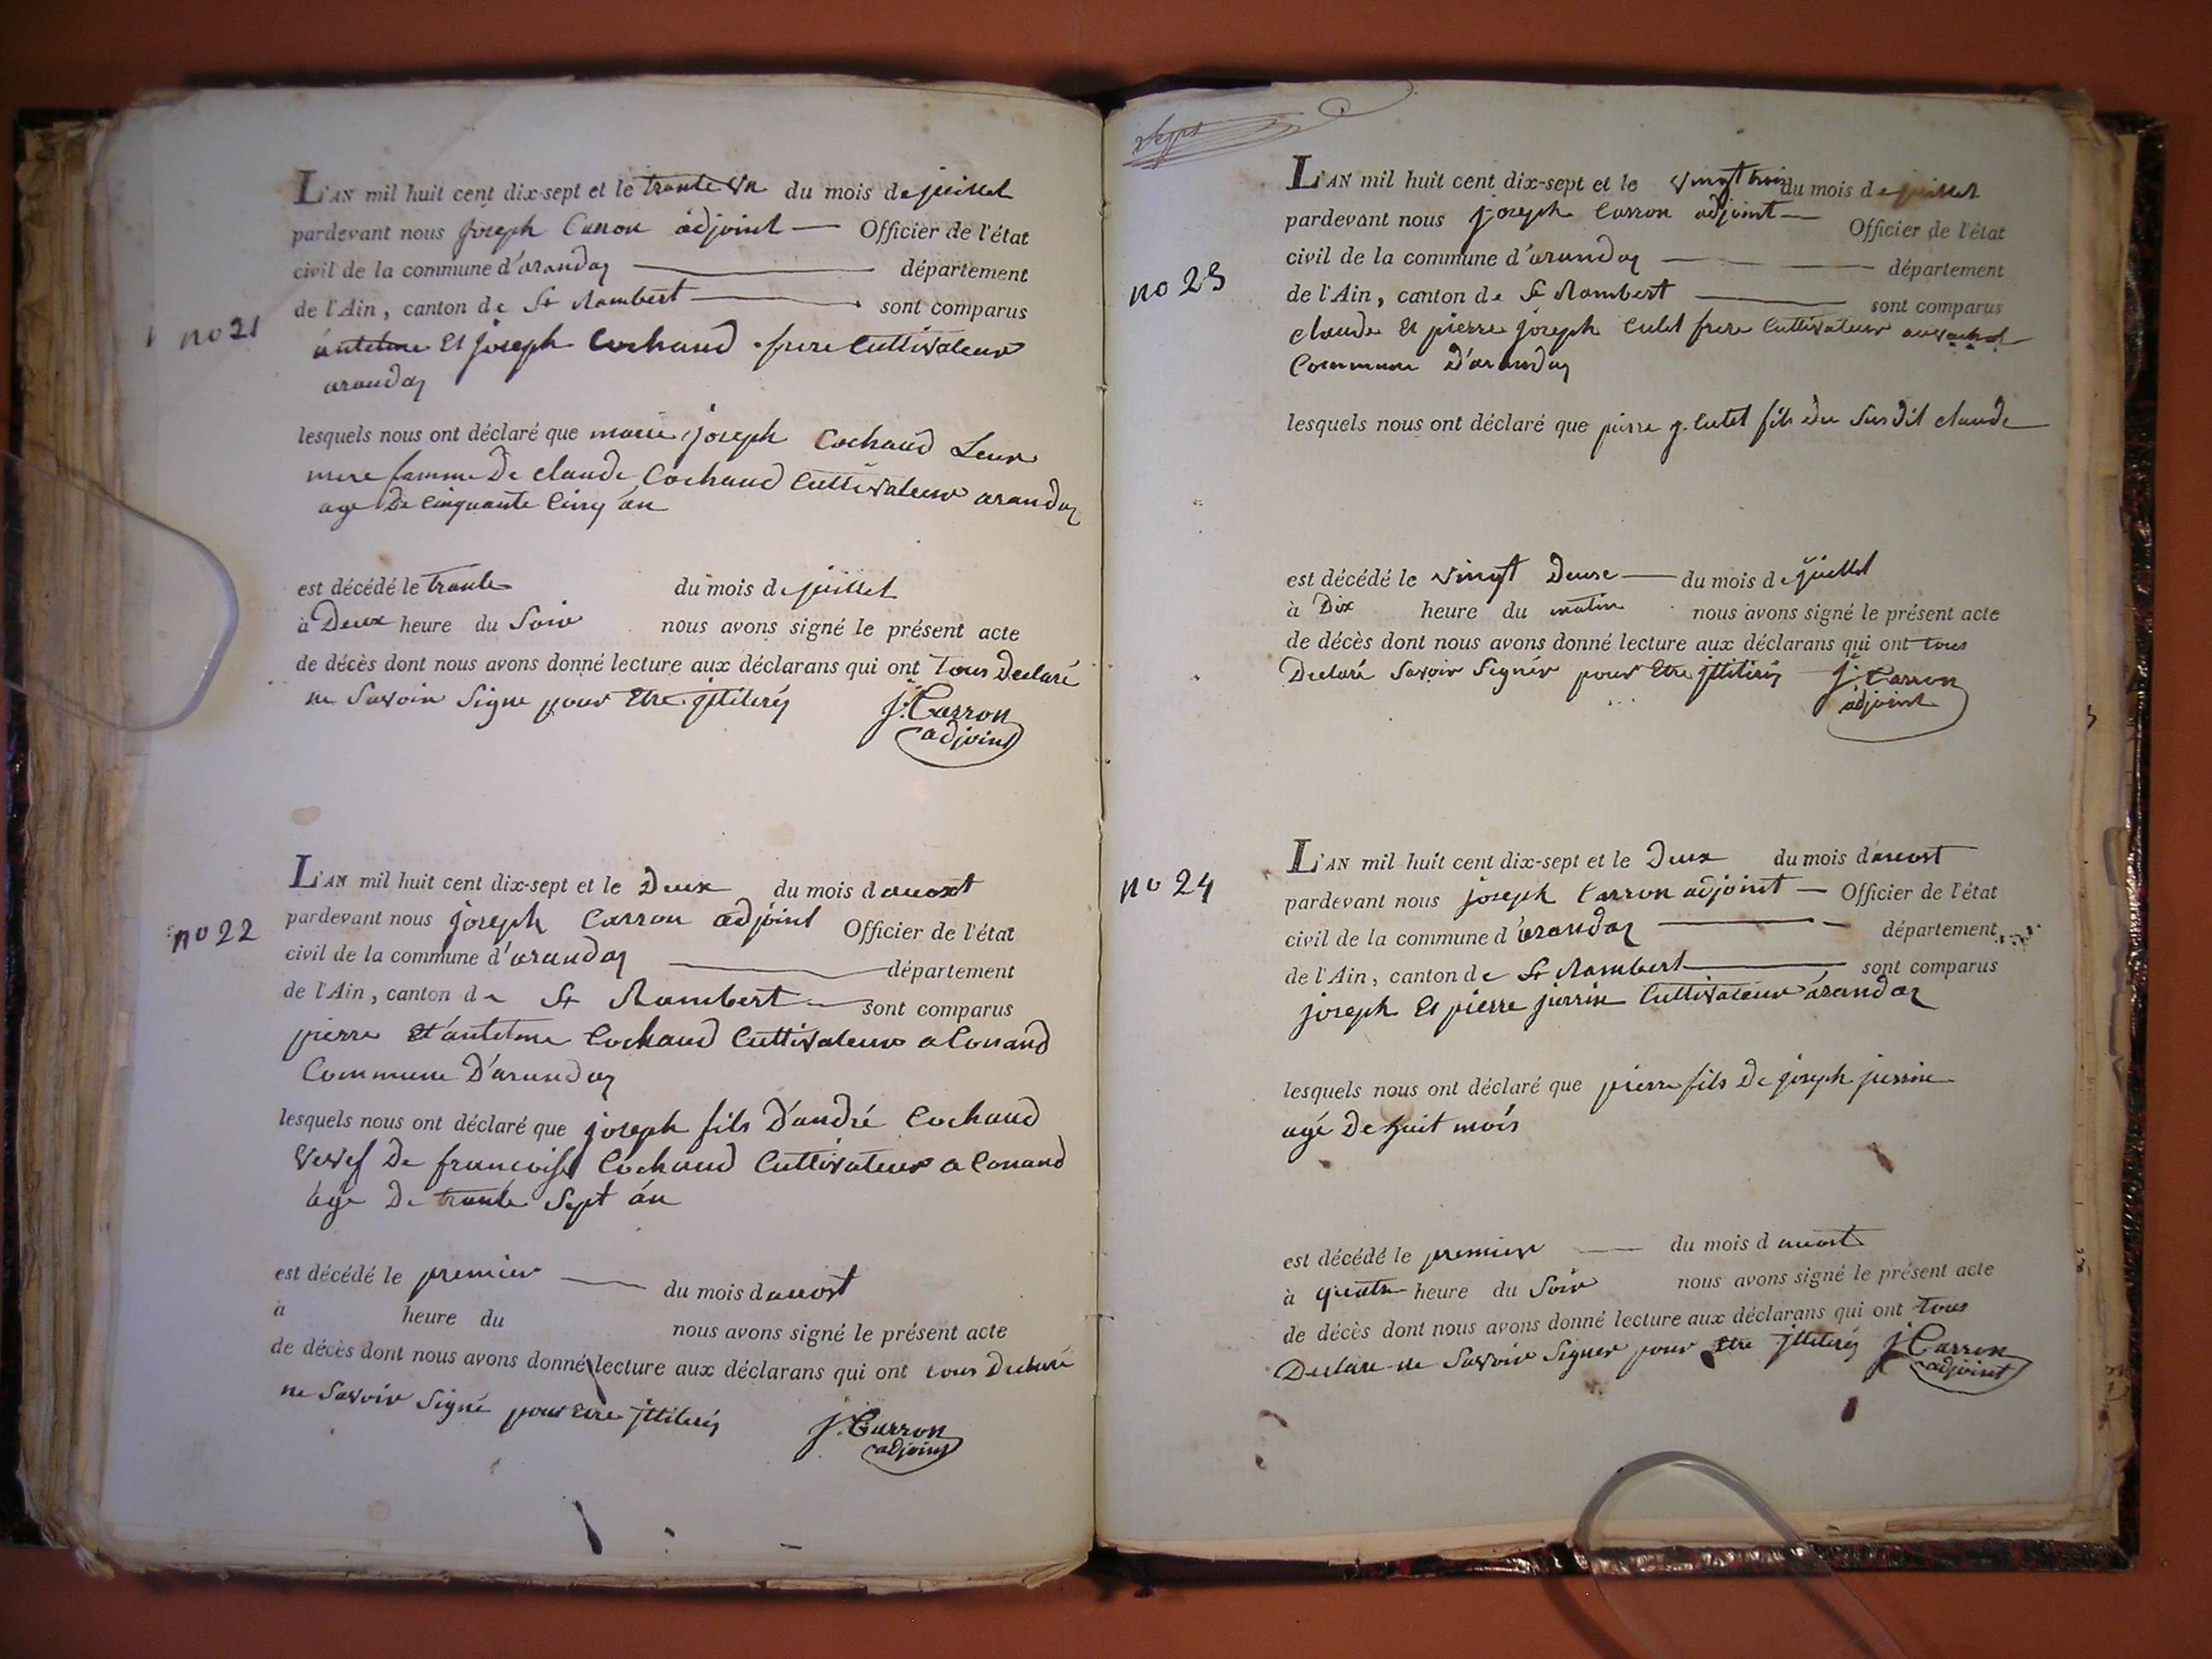 no 21
L'AN mil huit cent dix-sept et le trante un du mois de juillet
pardevant nous joseph Carron adjoint — Officier de l'état
civil de la commune d'arandas — département
de l'Ain, canton de St Rambert — sont comparus
antelme Et joseph Cochaud frere Cultivateur
arandas
lesquels nous ont déclaré que marie joseph Cochaud Leur
mere famme De claude Cochaud Cultivateur arandas
age De Cinquante Cinq án
est décédé le trante du mois de juillet
à Deux heure du Soir nous avons signé le présent acte
de décès dont nous avons donné lecture aux déclarans qui ont Tous Declaré
ne Savoir Signe pour Etre jlliterés
j. Carron
adjoint
no 22
L'AN mil huit cent dix-sept et le Deux du mois d auost
pardevant nous joseph Carron adjoint Officier de l'état
civil de la commune d'arandas — département
de l'Ain, canton de St Rambert — sont comparus
pierre Et antelme Cochaud Cultivateur a Conand
Commune D'arandas
lesquels nous ont déclaré que joseph fils D'andré Cochaud
vevef De francoise Cochaud Cultivateur a Conand
áge De trante Sept án
est décédé le premier — du mois d auost
à heure du nous avons signé le présent acte
de décès dont nous avons donné lecture aux déclarans qui ont tous Declaré
ne Savoir Signé pour Etre jlliterés
j. Carron
adjoint
no 23
L'AN mil huit cent dix-sept et le vingt trois du mois de juillet
pardevant nous joseph Carron adjoint — Officier de l'état
civil de la commune d'arandas — département
de l'Ain, canton de St Rambert — sont comparus
claude Et pierre joseph Culet frere Cultivateur
Commune D'arandas
lesquels nous ont déclaré que pierre j. Culet fils du Susdit claude
est décédé le vingt Deuxe — du mois de juillet
à Dix heure du matin nous avons signé le présent acte
de décès dont nous avons donné lecture aux déclarans qui ont tous
Declaré Savoir Signér pour Etre jlliterés j. Carron
adjoint
no 24
L'AN mil huit cent dix-sept et le Deux du mois d auost
pardevant nous joseph Carron adjoint — Officier de l'état
civil de la commune d'arandas — département
de l'Ain, canton de St Rambert — sont comparus
joseph Et pierre pierrine Cultivateur arandas
lesquels nous ont déclaré que pierre fils De joseph pierrine
agé De huit mois
est décédé le premier — du mois d auost
à quatre heure du Soir nous avons signé le présent acte
de décès dont nous avons donné lecture aux déclarans qui ont Tous
Declare ne Savoir Signer pour Etre jlliterés j. Carron
adjoint